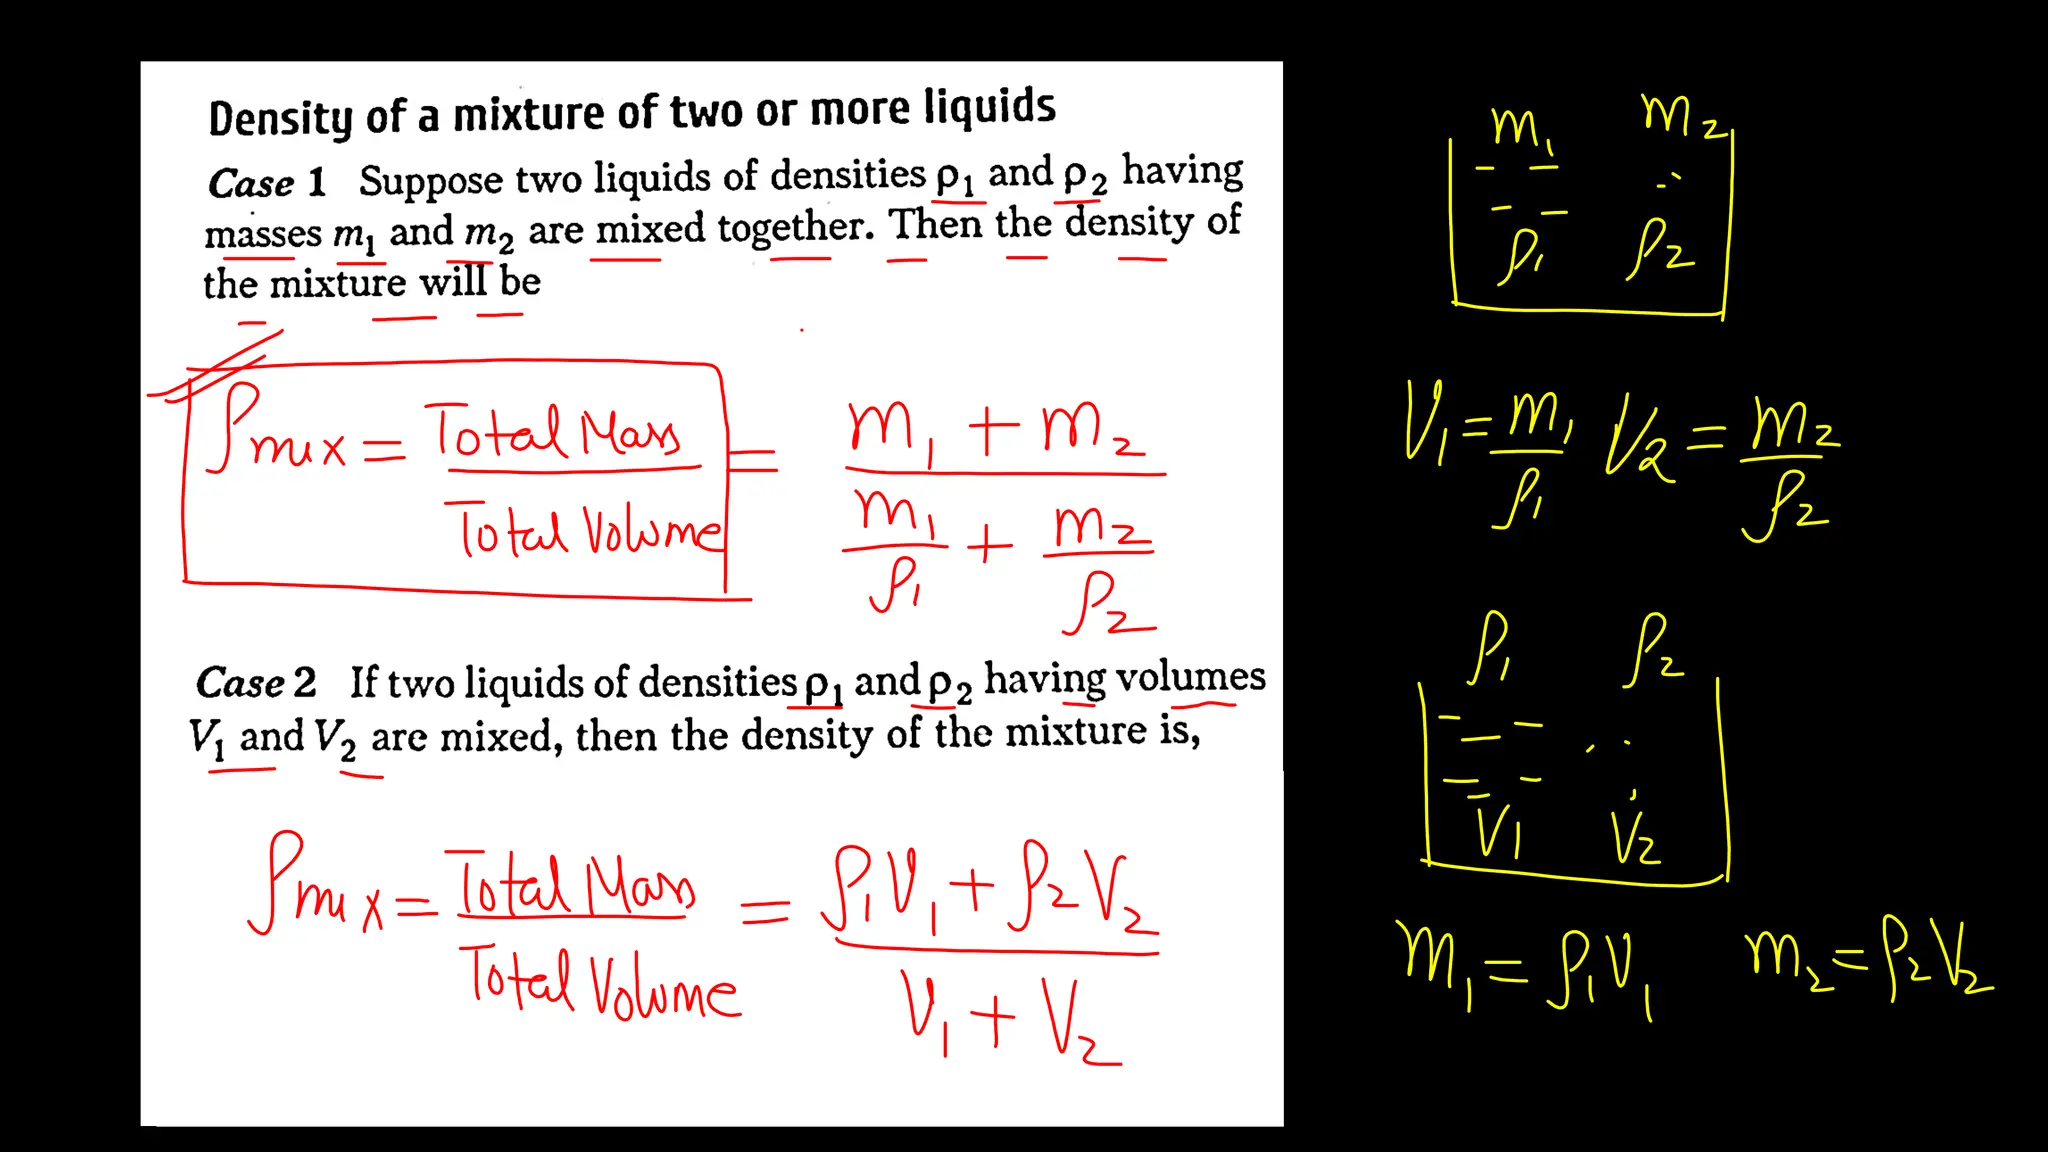 Density of a mixture of two or more liquids
Case 1 Suppose two liquids of densities ρ₁ and ρ₂ having
masses m₁ and m₂ are mixed together. Then the density of
the mixture will be
ρmix = Total Mass / Total Volume = (m₁ + m₂) / (m₁/ρ₁ + m₂/ρ₂)
Case 2 If two liquids of densities ρ₁ and ρ₂ having volumes
V₁ and V₂ are mixed, then the density of the mixture is,
ρmix = Total Mass / Total Volume = (ρ₁V₁ + ρ₂V₂) / (V₁ + V₂)
m₁ m₂
ρ₁ ρ₂
V₁ = m₁/ρ₁ V₂ = m₂/ρ₂
ρ₁ ρ₂
V₁ V₂
m₁ = ρ₁V₁ m₂ = ρ₂V₂